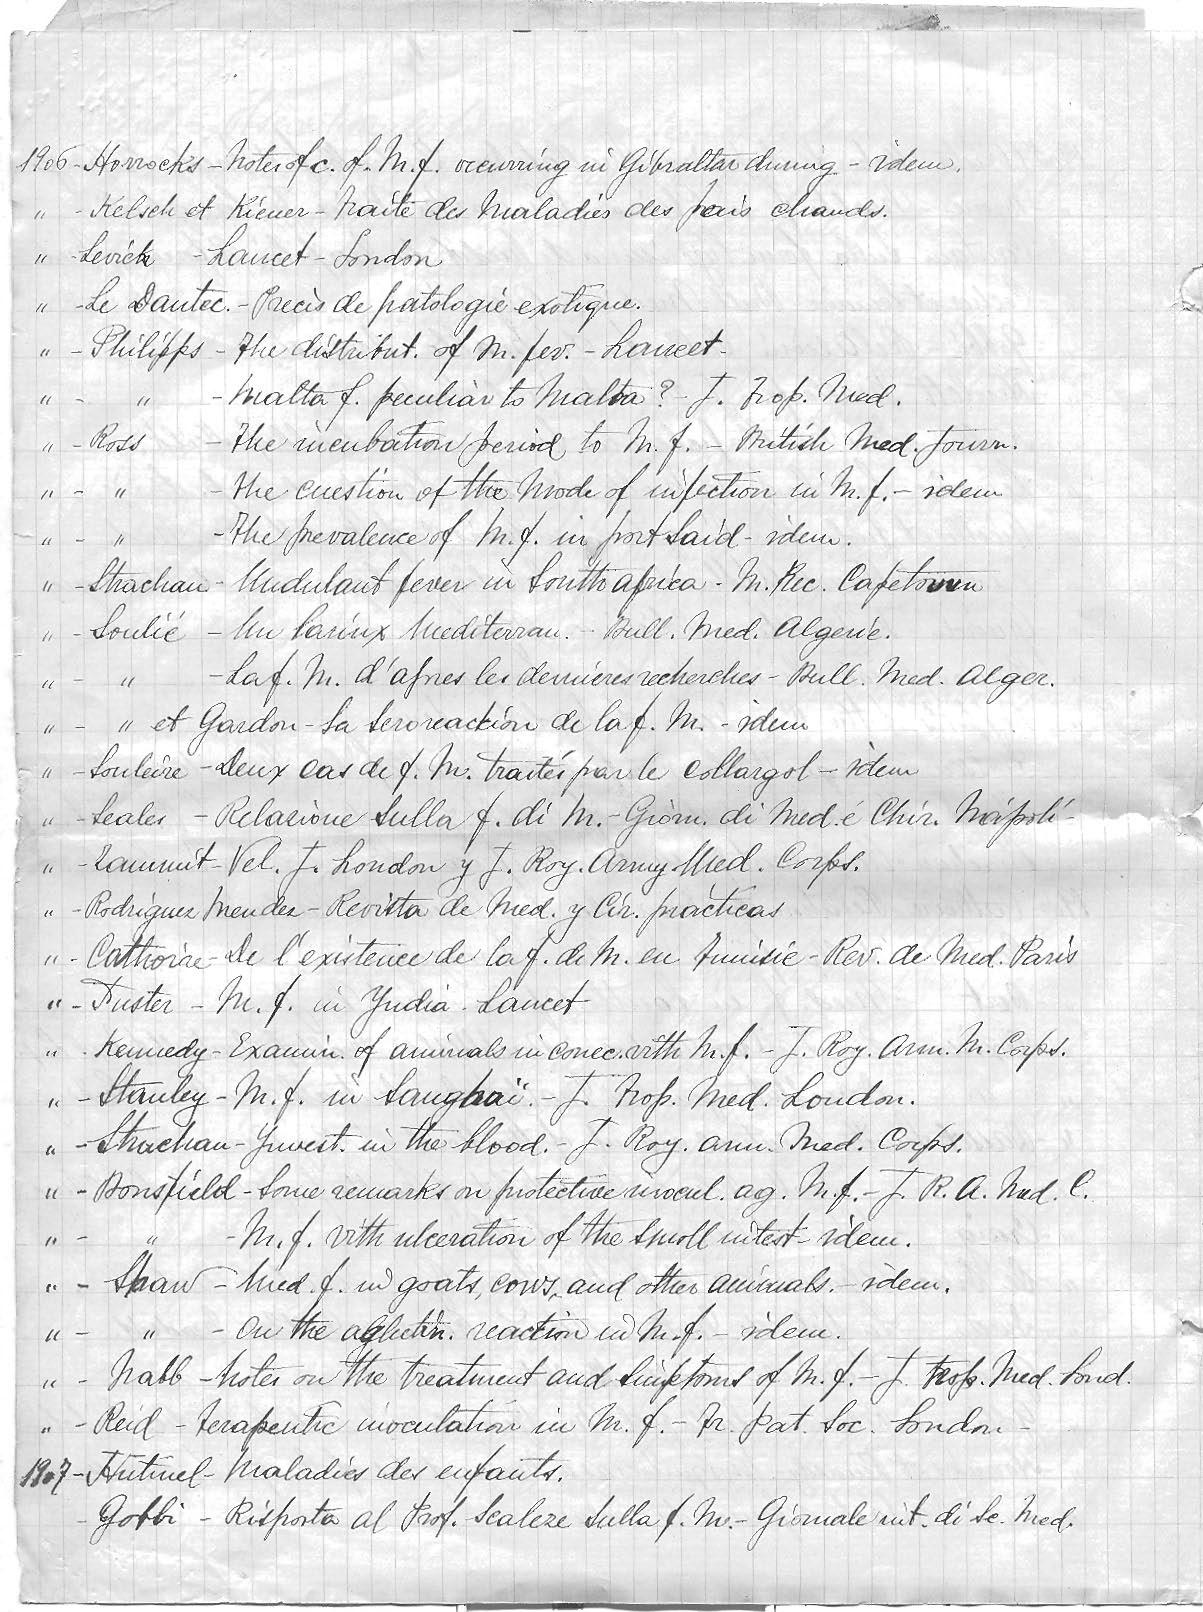 1906 - Horrocks - Notes of c. of. M. f. occurring in Gibraltar during - idem.
" - Kelsch et Kiener - Traite des Maladies des pais chauds.
" - Levick - Lancet - London
" - Le Dantec. - Precis de patologie exotique.
" - Philipps - The distribut. of M. fev. - Lancet -
" - " - Malta f. peculiar to Malta? - J. Trop. Med.
" - Ross - The incubation period to M. f. - British Med. Journ.
" - " - The cuestion of the Mode of infection in M. f. - idem
" - " - The prevalence of M. f. in port Said - idem.
" - Strachan - Undulant fever in South africa - M. Rec. Capetown
" - Soulié - Un Mediterran. - Bull. Med. Algerie.
" - " - La f. M. d'apres les dernieres recherches - Bull. Med. Alger.
" - " et Gardon - La seroreaction de la f. M. - idem
" - Souleire - Deux cas de f. M. traités par le collargol - idem
" - Scales - Relazione sulla f. di M. - Giorn. di Med. é Chir. Nápoli -
" - Zammit - Vel. J. London y J. Roy. Army Med. Corps.
" - Rodriguez Mendez - Revista de Med. y Cir. practicas
" - Cathoire - De l'existence de la f. de M. en Tunisie - Rev. de Med. Paris
" - Fuster - M. f. in Yndia - Lancet
" - Kennedy - Examin. of animals in conec. vith M. f. - J. Roy. Arm. M. Corps.
" - Stanley - M. f. in Sanghai. - J. Trop. Med. London.
" - Strachan - Ynvest. in the blood. - J. Roy. arm. Med. Corps.
" - Bonsfield - Some remarks on protective inocul. ag. M. f. - J. R. A. Med. C.
" - " - M. f. vith ulceration of the smoll intest - idem.
" - Shaw - Med. f. in goats, cows, and other animals. - idem.
" - " - On the aglutin. reaction in M. f. - idem.
" - Nabb - Notes on the treatment and simptoms of M. f. - J. trop. Med. Lond.
" - Reid - Terapeutic inoculation in M. f. - Tr. pat. Soc. London -
1907 - Hutinel - Maladies des enfants.
- Gobbi - Risposta al Prof. Scaleze sulla f. M. - Giornale int. di Sc. Med.